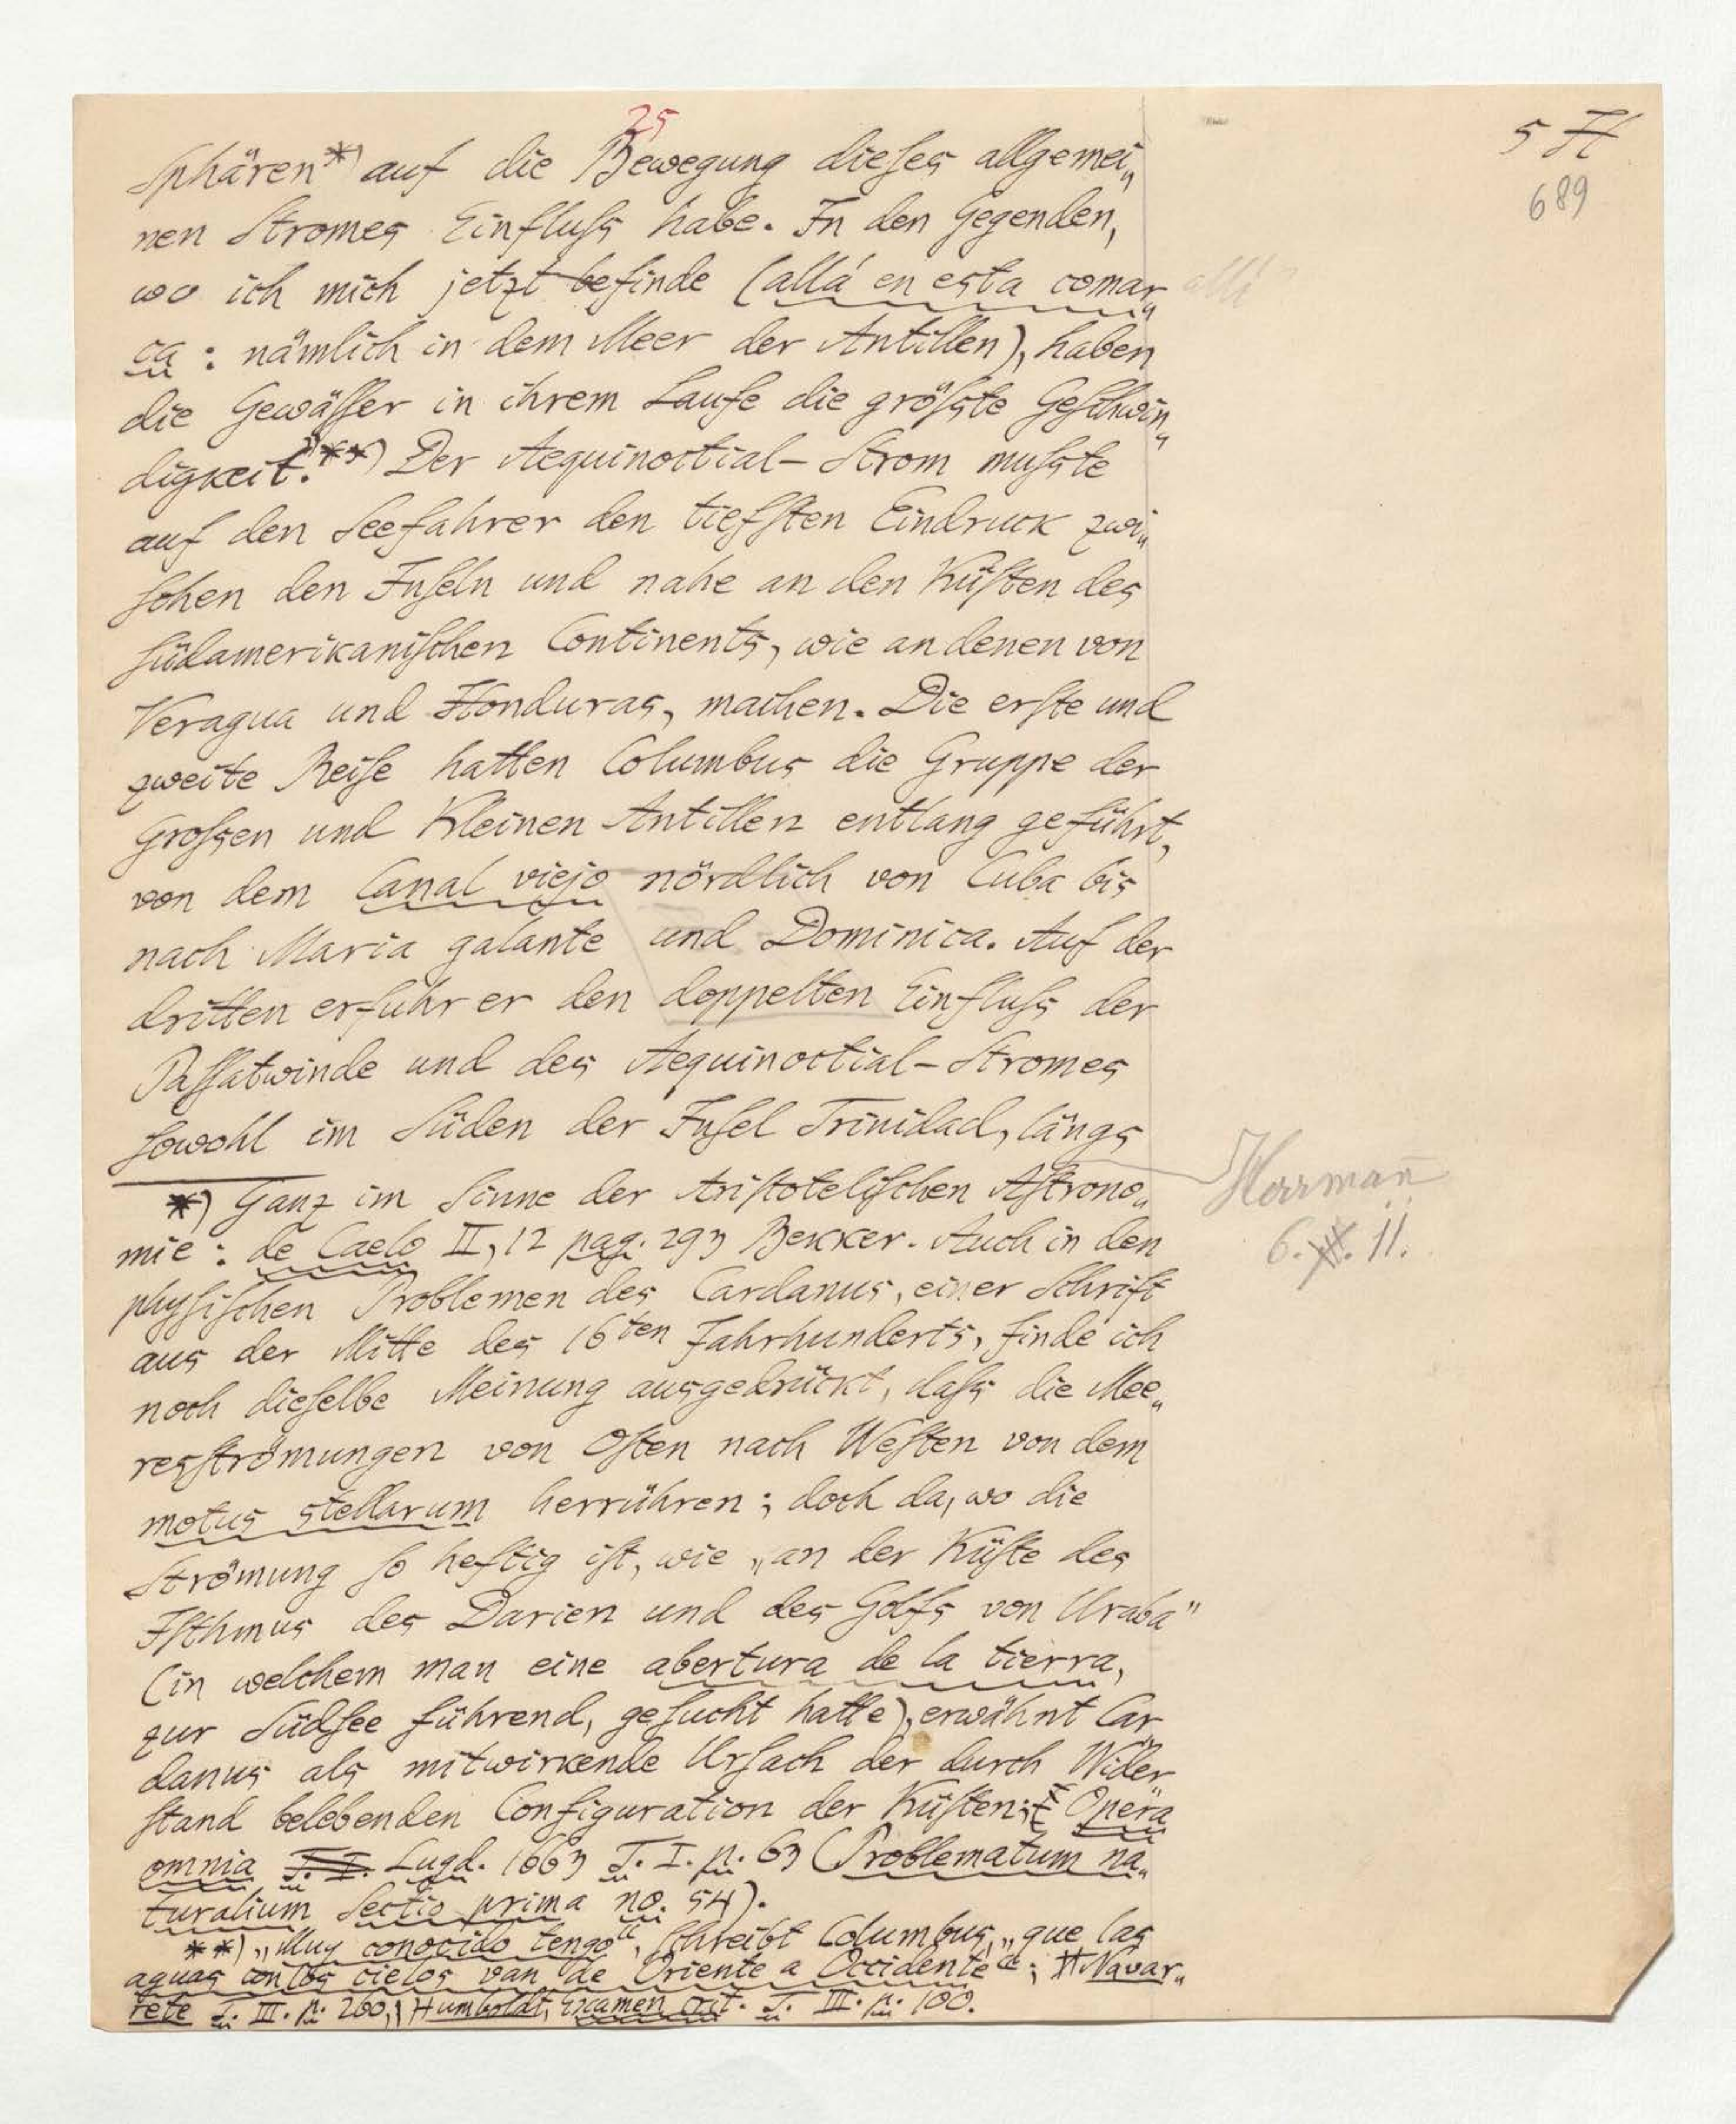 25
5 H
689
Sphären*) auf die Bewegung dieſes allgemei„
nen Stromes Einfluſs habe. In den Gegenden,
wo ich mich jetzt befinde (allá en esta comar„
allí
ca: nämlich in dem Meer der Antillen), haben
die Gewäſſer in ihrem Laufe die gröſste Geſchwin„
digkeit."**) Der Aequinoctial-Strom muſste
auf den Seefahrer den tiefſten Eindruck zwi„
ſchen den Inſeln und nahe an den Küſten des
ſüdamerikaniſchen Continents, wie an denen von
Veragua und Honduras, machen. Die erſte und
zweite Reiſe hatten Columbus die Gruppe der
Groſsen und Kleinen Antillen entlang geführt,
von dem Canal viejo nördlich von Cuba bis
nach Maria galante und Dominica. Auf der
dritten erfuhr er den doppelten Einfluſs der
Paſſatwinde und des Aequinoctial-Stromes
ſowohl im Süden der Inſel Trinidad, längs
Herrmañ
6. XII. 11.
*) Ganz im Sinne der Ariſtoteliſchen Aſtrono„
mie: de Caelo II, 12 pag. 293 Bekker. Auch in den
phyſiſchen Problemen des Cardanus, einer Schrift
aus der Mitte des 16ten Jahrhunderts, finde ich
noch dieſelbe Meinung ausgedrückt, daſs die Mee„
resſtrömungen von Oſten nach Weſten von dem
motus stellarum herrühren; doch da, wo die
Strömung ſo heftig iſt, wie „an der Küſte des
Iſthmus des Darien und des Golfs von Uraba"
(in welchem man eine abertura de la tierra,
zur Südſee führend, geſucht hatte), erwähnt Car„
danus als mitwirkende Urſach der durch Wider„
ſtand belebenden Configuration der Küſten: Opera
omnia T. I. Lugd. 1663 T. I. p. 63 (Problematum na„
turalium Sectio prima no. 54).
**) „Muy conocido tengo", ſchreibt Columbus, „que las
aguas con los cielos van de Oriente a Occidente"; Navar„
rete T. III. p. 260, Humboldt, Examen crit. T. III. p. 100.